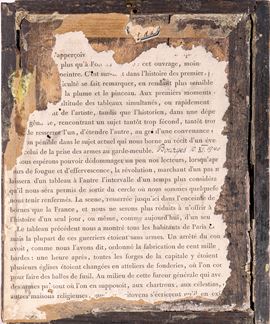 l'apperçoive
plus qu'à cet ouvrage, moin
peintre. C'est dans l'histoire des premiers
culté se fait remarquer, en rendant plus sensible
la plume et le pinceau. Aux premiers moments
ltitude des tableaux simultanés, ou rapidement
t de l'artiste, tandis que l'historien, dans une dépe
rencontrant un sujet tantôt trop fécond, tantôt tro
le resserrer l'un, d'étendre l'autre, au gré d'une convenance
n pénible dans le sujet actuel qui nous borne au récit d'un évé
celui de la prise des armes au garde-meuble.
ous espérons pouvoir dédommager un peu nos lecteurs, lorsqu'apr
urs de fougue et d'effervescence, la révolution, marchant d'un pas
issera d'un tableau à l'autre l'intervalle d'un temps plus considéra
qu'il nous sera permis de sortir du cercle où nous sommes quelquefo
tenir renfermés. La scène, resserrée jusqu'ici dans l'enceinte
bornes que la France, et nous ne serons plus réduits à n'offrir à
l'histoire d'un seul jour, ou même, comme aujourd'hui, d'un seu
Le tableau précédent nous a montré tous les habitants de Paris
mais la plupart de ces guerriers étoient sans armes. Un arrêté du con
avoit, comme nous l'avons dit, ordonné la fabrication de cent mille
bardes: une heure après, toutes les forges de la capitale y étoient
plusieurs églises étoient changées en atteliers de fonderie, où l'on cou
pour faire des balles de fusil. Au milieu de cette fureur générale qui ave
des armes par tout où l'on en supposoit, aux chartreux, aux célestins,
autres maisons religieuses, citoyens s'écrièrent qu'il en exi